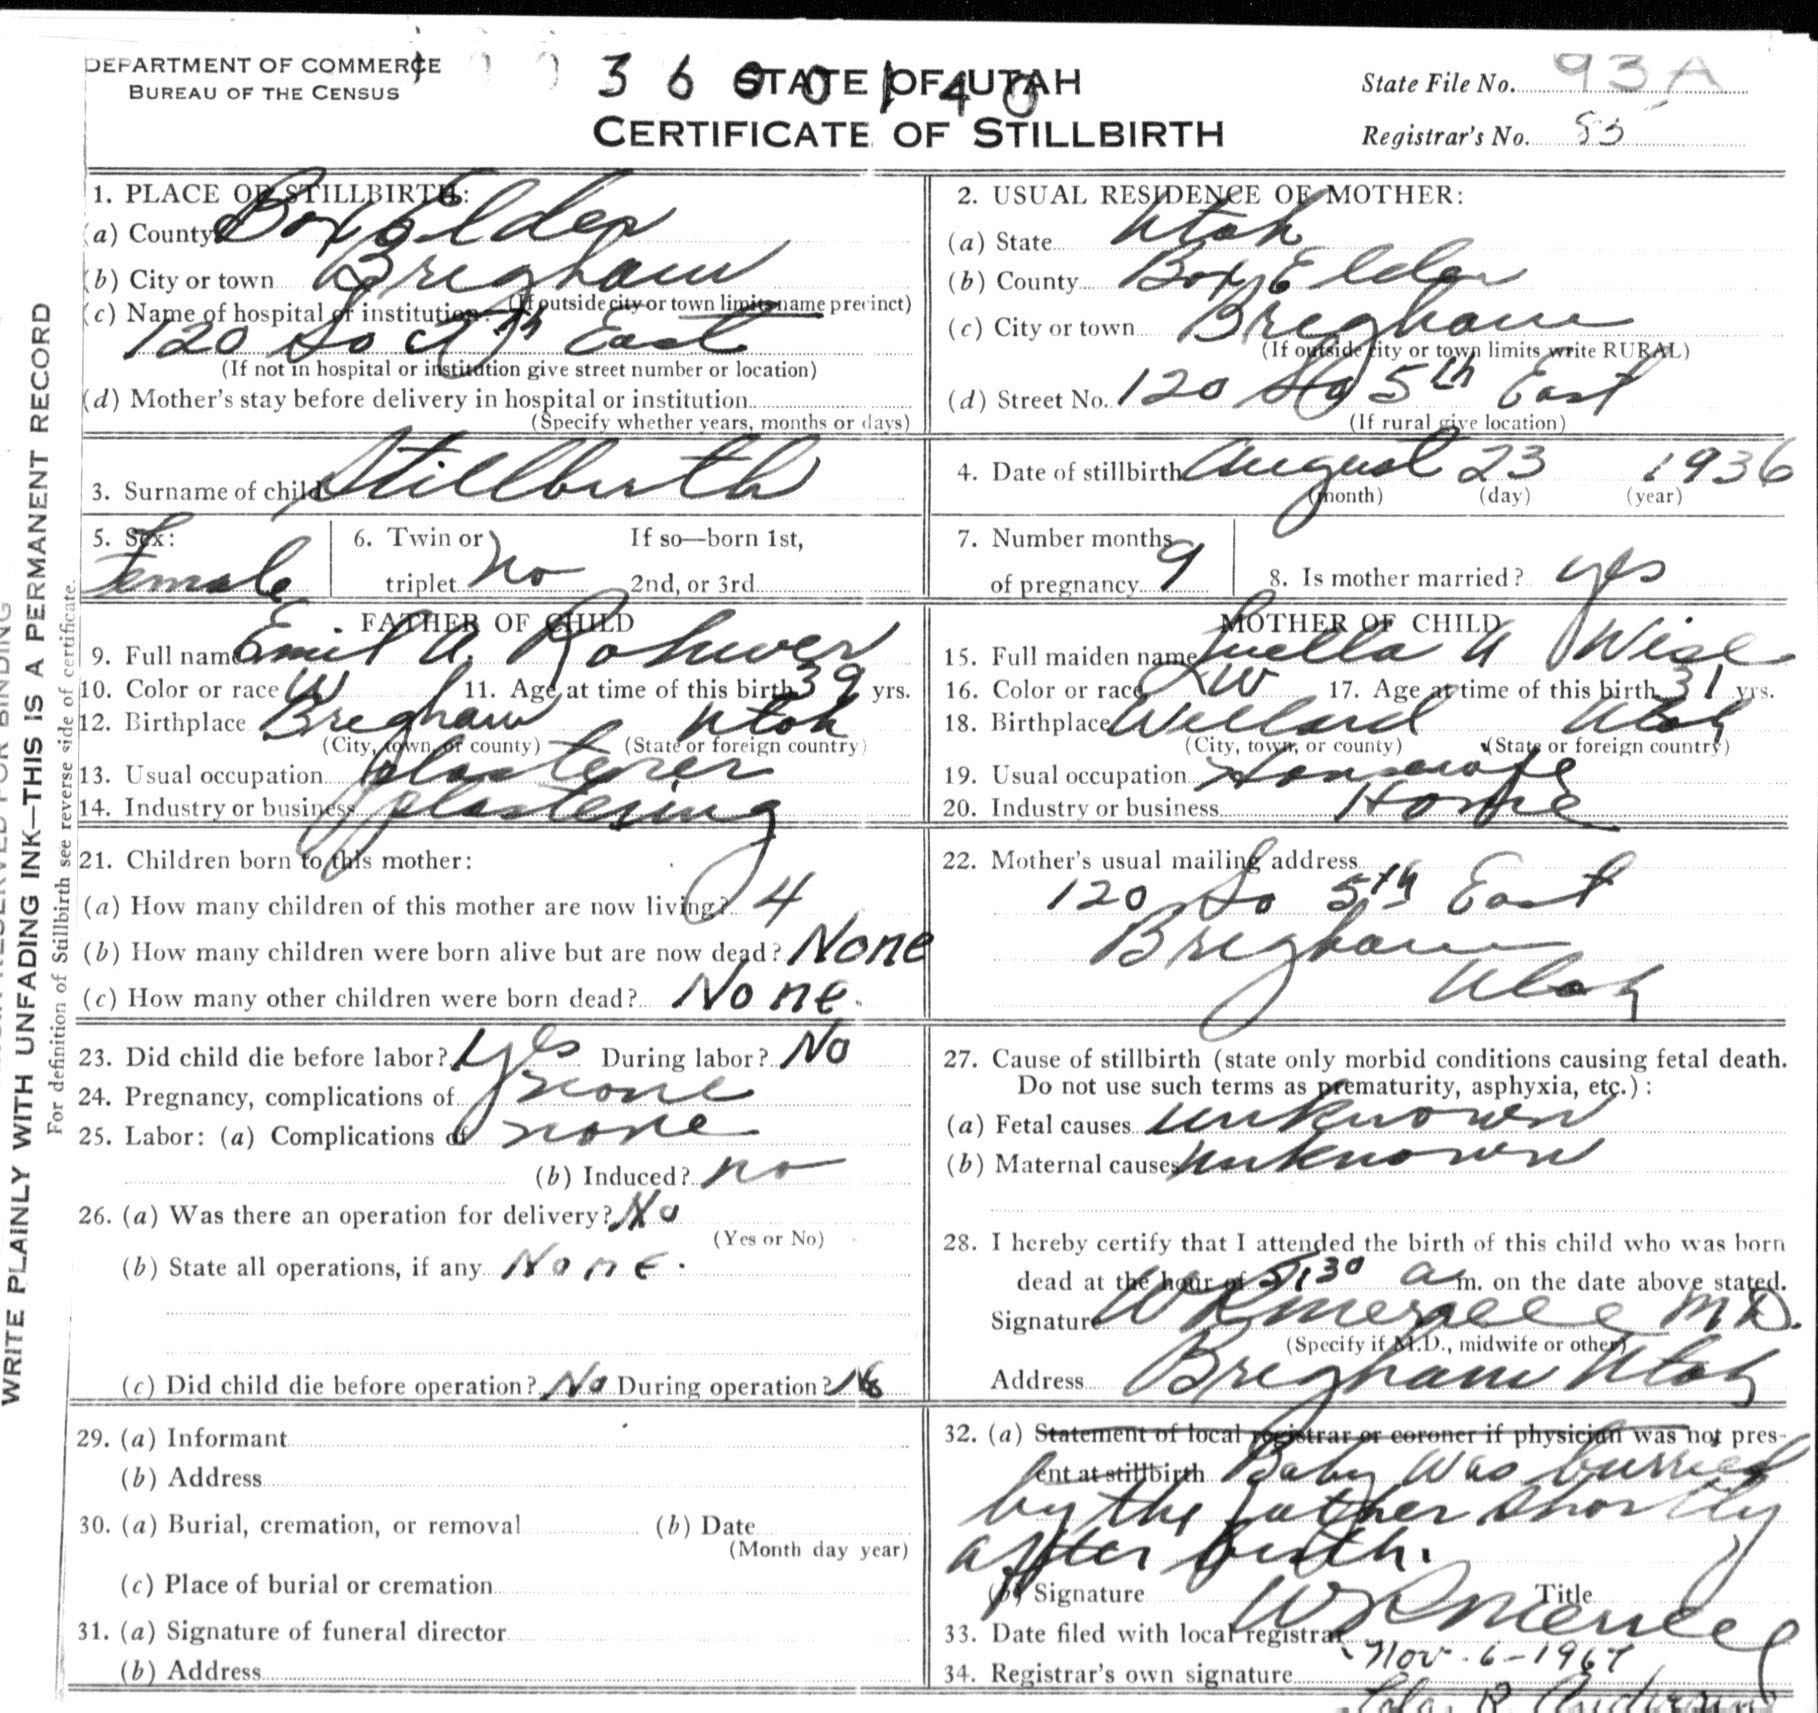 DEPARTMENT OF COMMERCE
BUREAU OF THE CENSUS
3 6 0 0 1 4 0
STATE OF UTAH
CERTIFICATE OF STILLBIRTH
State File No. 93A
Registrar's No. 85
WRITE PLAINLY WITH UNFADING INK—THIS IS A PERMANENT RECORD
For definition of Stillbirth see reverse side of certificate.
1. PLACE OF STILLBIRTH:
(a) County Box Elder
(b) City or town Brigham
(If outside city or town limits name precinct)
(c) Name of hospital or institution
120 So 5th East
(If not in hospital or institution give street number or location)
(d) Mother's stay before delivery in hospital or institution
(Specify whether years, months or days)
2. USUAL RESIDENCE OF MOTHER:
(a) State Utah
(b) County Box Elder
(c) City or town Brigham
(If outside city or town limits write RURAL)
(d) Street No. 120 So 5th East
(If rural give location)
3. Surname of child Stillbirth
4. Date of stillbirth August 23 1936
(month) (day) (year)
5. Sex: Female
6. Twin or triplet No If so—born 1st, 2nd, or 3rd
7. Number months of pregnancy 9
8. Is mother married? yes
FATHER OF CHILD
9. Full name Emil A. Rohwer
10. Color or race W 11. Age at time of this birth 39 yrs.
12. Birthplace Brigham Utah
(City, town, or county) (State or foreign country)
13. Usual occupation plasterer
14. Industry or business plastering
MOTHER OF CHILD
15. Full maiden name Luella A Wise
16. Color or race W 17. Age at time of this birth 31 yrs.
18. Birthplace Willard Utah
(City, town, or county) (State or foreign country)
19. Usual occupation Housewife
20. Industry or business Home
21. Children born to this mother:
(a) How many children of this mother are now living? 4
(b) How many children were born alive but are now dead? None
(c) How many other children were born dead? None.
22. Mother's usual mailing address
120 So 5th East
Brigham
Utah
23. Did child die before labor? Yes During labor? No
24. Pregnancy, complications of none
25. Labor: (a) Complications of none
(b) Induced? no
26. (a) Was there an operation for delivery? No
(Yes or No)
(b) State all operations, if any None.
(c) Did child die before operation? No During operation? No
27. Cause of stillbirth (state only morbid conditions causing fetal death.
Do not use such terms as prematurity, asphyxia, etc.):
(a) Fetal causes unknown
(b) Maternal causes unknown
28. I hereby certify that I attended the birth of this child who was born
dead at the hour of 5:30 a m. on the date above stated.
Signature W R Merrell M.D.
(Specify if M.D., midwife or other)
Address Brigham Utah
29. (a) Informant
(b) Address
30. (a) Burial, cremation, or removal (b) Date
(Month day year)
(c) Place of burial or cremation
31. (a) Signature of funeral director
(b) Address
32. (a) Statement of local registrar or coroner if physician was not pres-
ent at stillbirth Baby was burried
by the father shortly
after birth.
(b) Signature W R Merrell Title
33. Date filed with local registrar Nov. 6-1967
34. Registrar's own signature